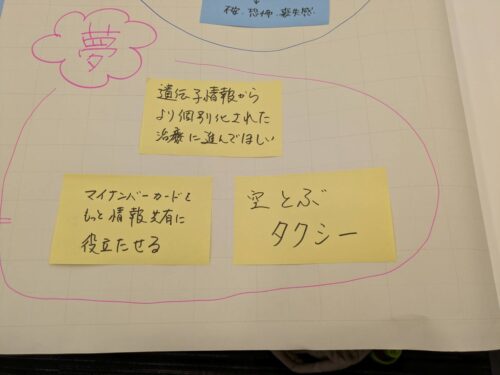 不安、恐怖、喪失感
夢
遺伝子情報から
より個別化された
治療に進んでほしい
マイナンバーカードを
もっと情報共有に
役立たせる
空とぶ
タクシー